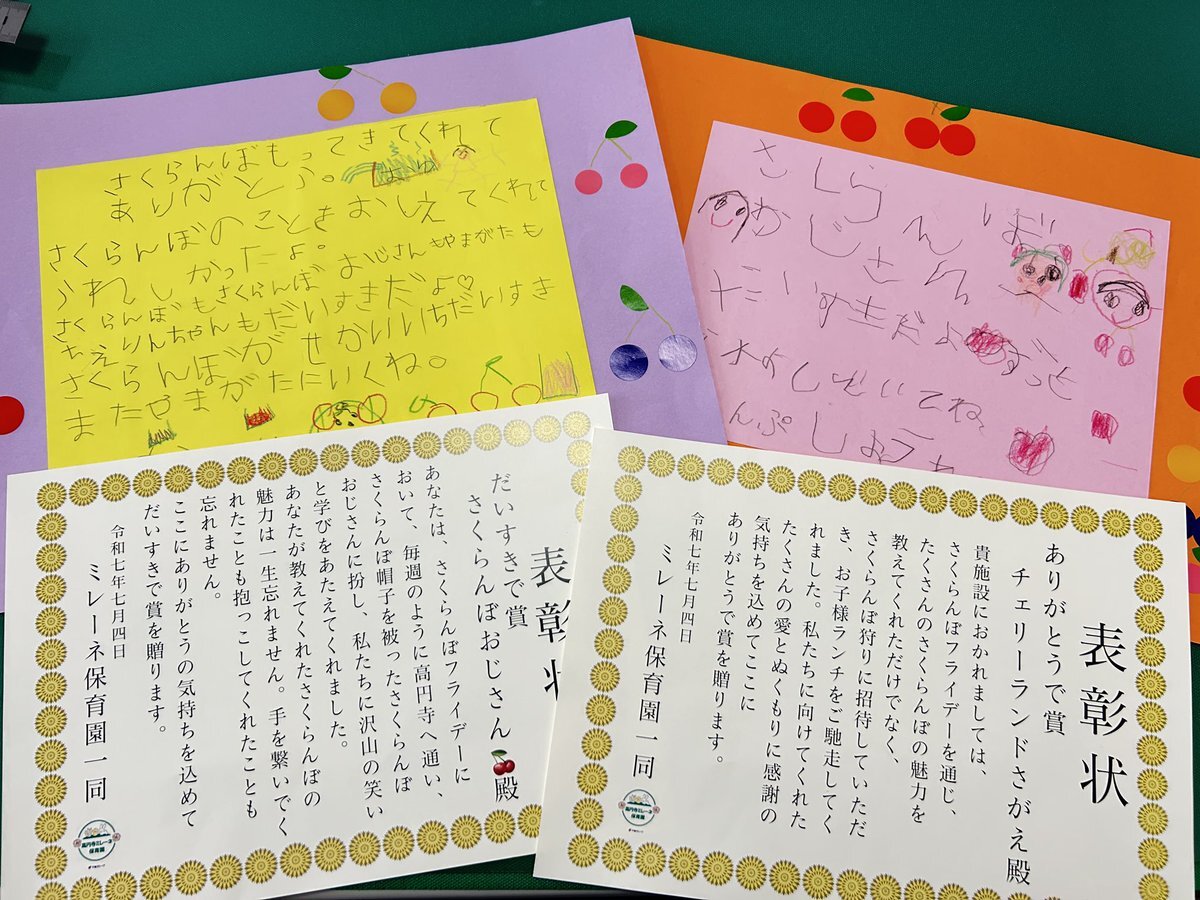 さくらんぼもってきてくれて
ありがとう。
さくらんぼのことをおしえてくれて
うれしかったよ。
さくらんぼもさくらんぼおじさんもやまがたも
ちえりんちゃんもだいすきだよ♡
さくらんぼがせかいいちだいすき
またやまがたにいくね。
さくらんぼ
おじさん
だいすきだよ ずっと
表彰状
だいすきで賞
さくらんぼおじさん🍒殿
あなたは、さくらんぼフライデーに
おいて、毎週のように高円寺へ通い、
さくらんぼ帽子を被ったさくらんぼ
おじさんに扮し、私たちに沢山の笑い
と学びをあたえてくれました。
あなたが教えてくれたさくらんぼの
魅力は一生忘れません。手を繋いでく
れたことも抱っこしてくれたことも
忘れません。
ここにありがとうの気持ちを込めて
だいすきで賞を贈ります。
令和七年七月四日
ミレーネ保育園一同
高円寺ミレーネ
保育園
表彰状
ありがとうで賞
チェリーランドさがえ殿
貴施設におかれましては、
さくらんぼフライデーを通じ、
たくさんのさくらんぼの魅力を
教えてくれただけでなく、
さくらんぼ狩りに招待していただ
き、お子様ランチをご馳走してく
れました。私たちに向けてくれた
たくさんの愛とぬくもりに感謝の
気持ちを込めてここに
ありがとうで賞を贈ります。
令和七年七月四日
ミレーネ保育園一同
高円寺ミレーネ
保育園